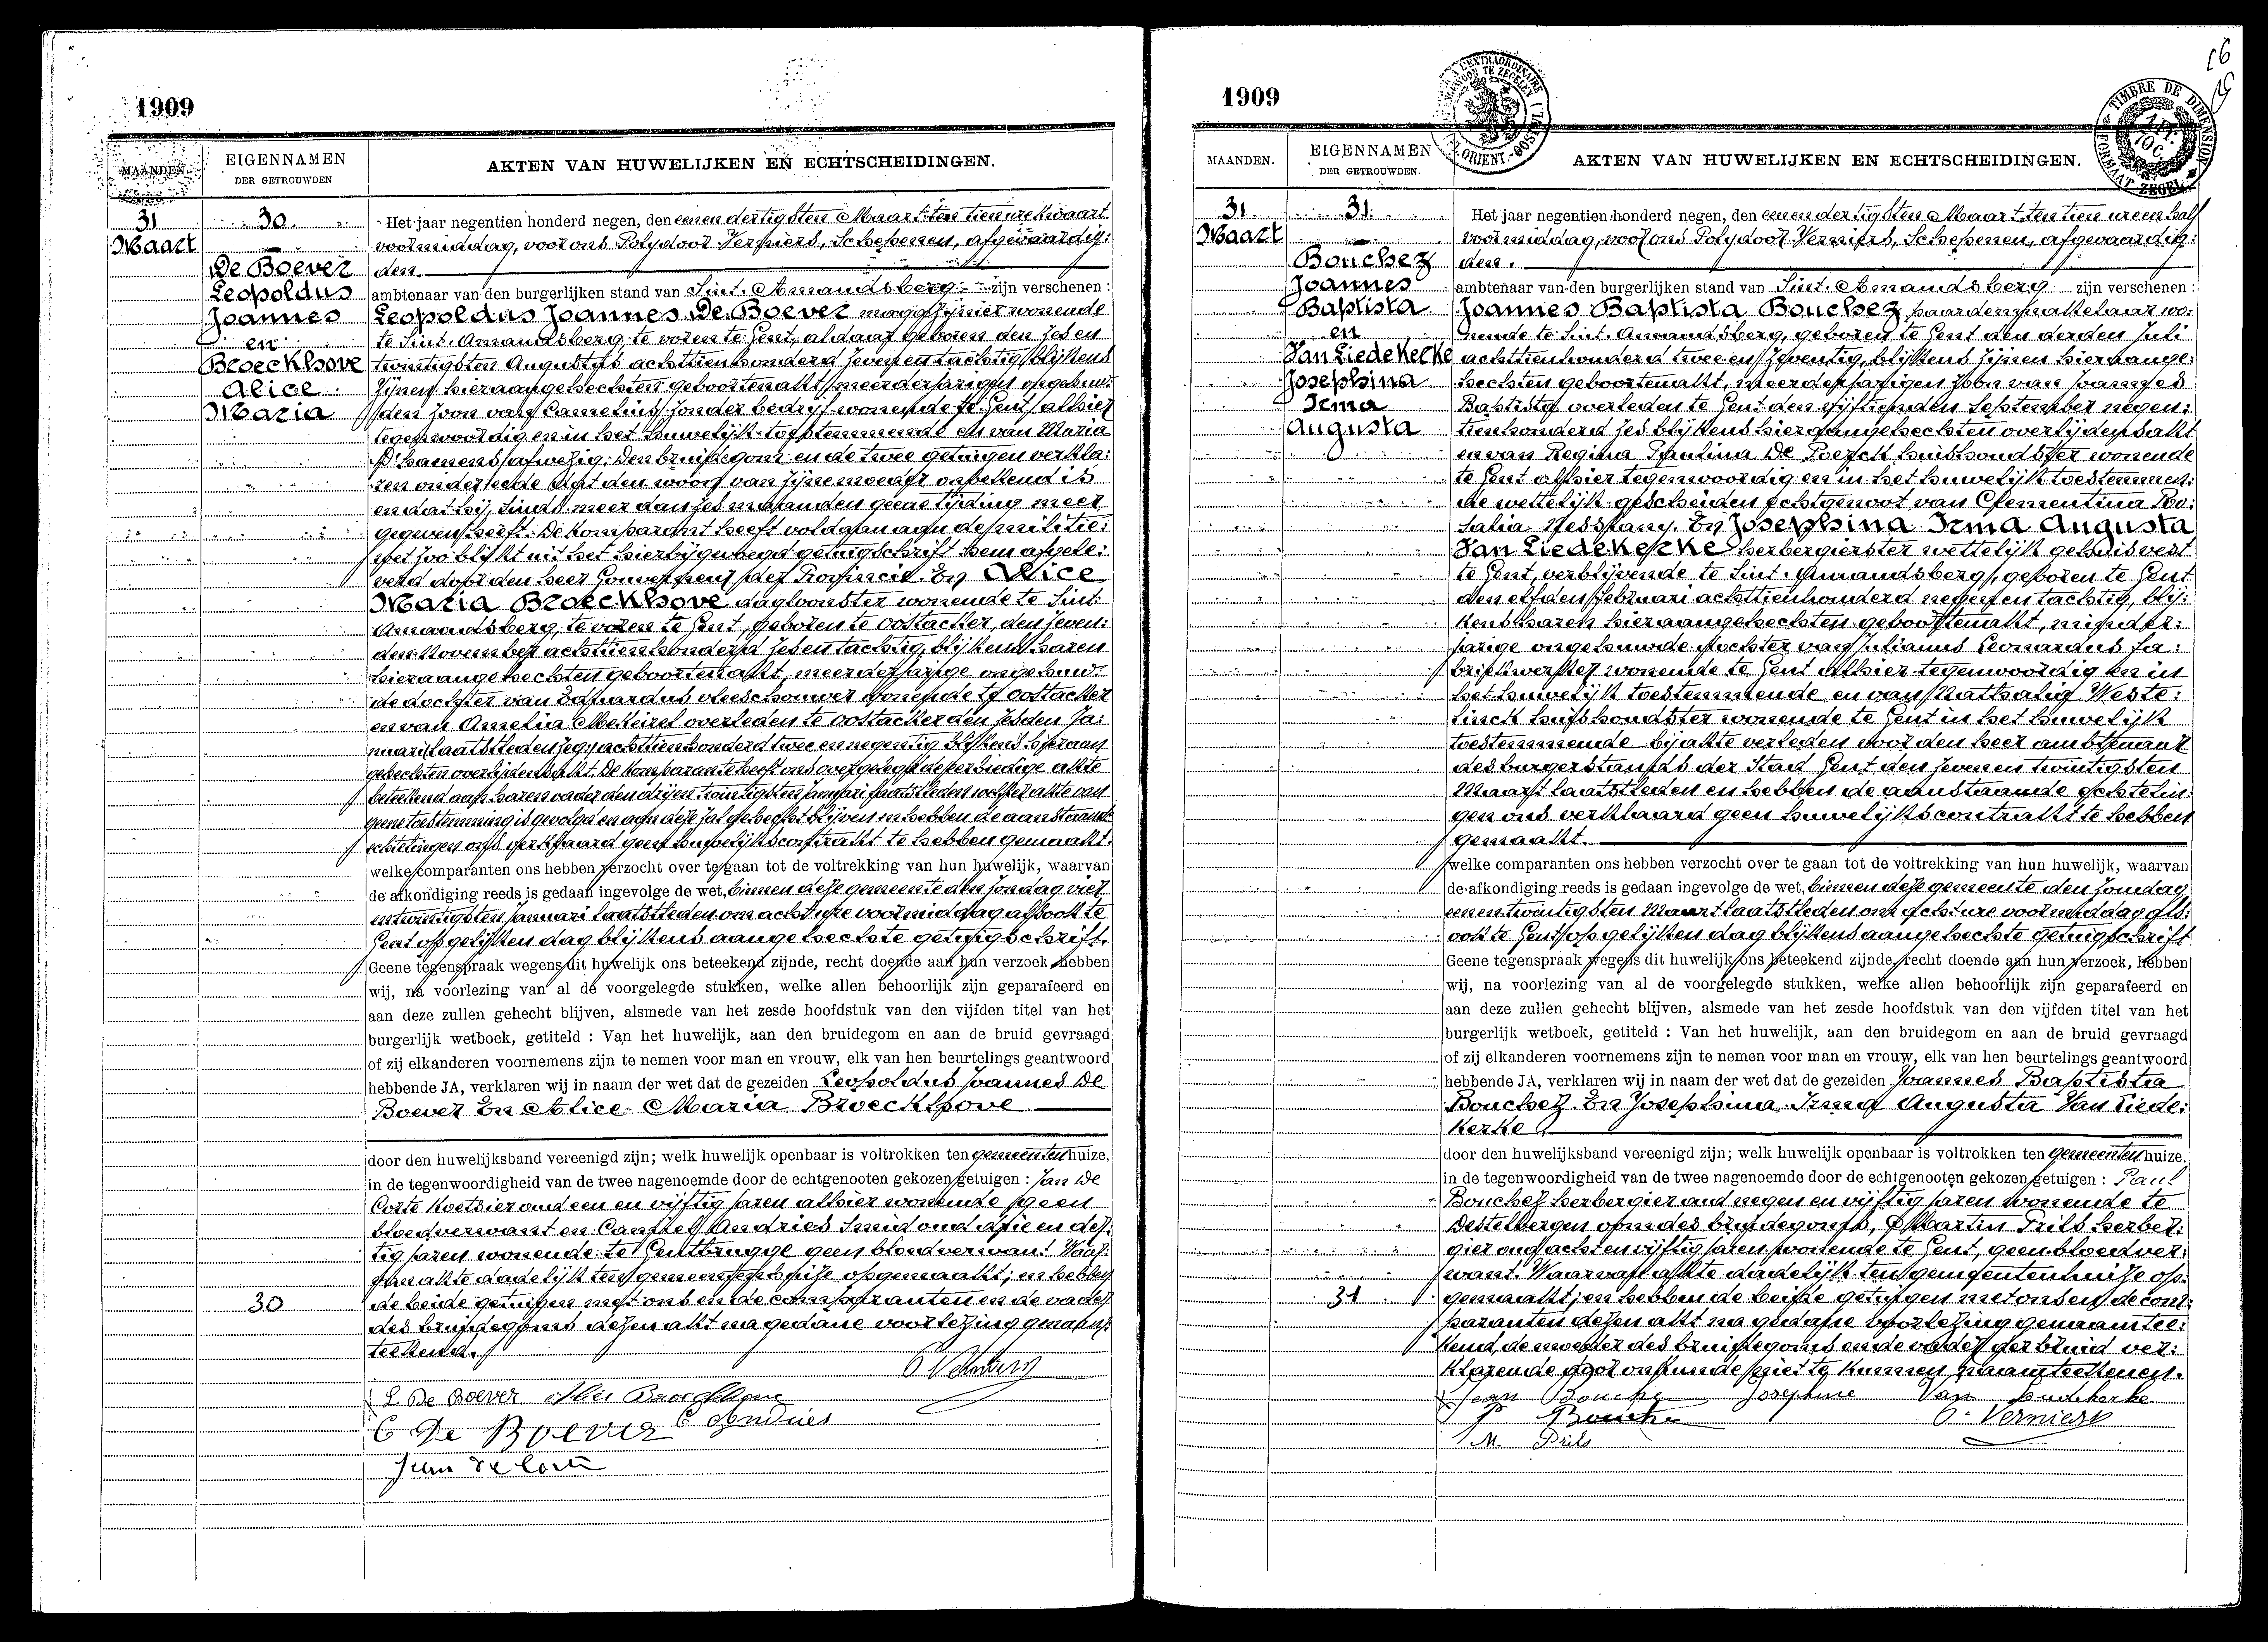 1909
MAANDEN.
EIGENNAMEN
DER GETROUWDEN
AKTEN VAN HUWELIJKEN EN ECHTSCHEIDINGEN.
31
Maart
30
De Boever
Leopoldus
Joannes
en
Broeckhove
Alice
Maria
Het jaar negentien honderd negen, den eenen dertigsten Maart ten tien ure kwaart
voormiddag, voor ons Polydoor Verniers, Schepenen, afgevaardig:
den.
ambtenaar van den burgerlijken stand van Sint. Amandsberg zijn verschenen :
Leopoldus Joannes De Boever magazijnier wonende
te Sint. Amandsberg, te voren te Gent, aldaar geboren den zes en
twintigsten Augustus achttienhonderd zeven en tachtig, blijkens
zijnen hieraangehechten geboortenakt, meerderjarigen ongehuw:
den zoon van Camelius zonder bedrijf wonende te Gent, alhier
tegenwoordig en in het huwelijk toestemmende en van Maria
D'haenens afwezig. Den bruidegom en de twee getuigen verkla:
ren onder eede dat den woon van zijne moeder onbekend is
en dat zij, sinds meer dan zes maanden geene tijding meer
gegeven heeft. De komparant heeft voldaan aan de militie:
wet zoo blijkt uit het hierbijgevoegd getuigschrift hem afgele:
verd door den heer Gouverneur der Provincie. En Alice
Maria Broeckhove dagloonster wonende te Sint.
Amandsberg, te voren te Gent, geboren te Oostacker, den zeven:
den November achttienhonderd zes en tachtig, blijkens haren
hieraangehechten geboortenakt, meerderjarige ongehuw:
de dochter van Eduardus vleeschouwer wonende te Oostacker
en van Amelia Mekeirel overleden te Oostacker den zesden Ja:
nuari laatstleden achttienhonderd twee en negentig blijkens hieraan
gehechten overlijdensakt. De komparante heeft ons overgelegd de eerbiedige akte
beteekend aan haren vader den drijen twintigsten januari laatstleden welker akte van
geene toestemming is gevolgd en aan deze zal gehecht blijven en hebben de aanstaande
echtelingen ons verklaard geen huwelijkscontrakt te hebben gemaakt.
welke comparanten ons hebben verzocht over te gaan tot de voltrekking van hun huwelijk, waarvan
de afkondiging reeds is gedaan ingevolge de wet, binnen deze gemeente den zondag vier
en twintigsten Januari laatstleden om acht ure voormiddag alsook te
Gent op gelijken dag blijkens aangehechte getuigschrift.
Geene tegenspraak wegens dit huwelijk ons beteekend zijnde, recht doende aan hun verzoek hebben
wij, na voorlezing van al de voorgelegde stukken, welke allen behoorlijk zijn geparafeerd en
aan deze zullen gehecht blijven, alsmede van het zesde hoofdstuk van den vijfden titel van het
burgerlijk wetboek, getiteld : Van het huwelijk, aan den bruidegom en aan de bruid gevraagd
of zij elkanderen voornemens zijn te nemen voor man en vrouw, elk van hen beurtelings geantwoord
hebbende JA, verklaren wij in naam der wet dat de gezeiden Leopoldus Joannes De
Boever En Alice Maria Broeckhove
door den huwelijksband vereenigd zijn; welk huwelijk openbaar is voltrokken ten gemeentenhuize,
in de tegenwoordigheid van de twee nagenoemde door de echtgenooten gekozen getuigen : Jan De
Corte koetsier oud een en vijftig jaren alhier wonende geen
bloedverwant en Camiel Andries Smid oud drie en der:
tig jaren wonende te Gentbrugge geen bloedverwant. Waar:
van akte dadelijk ten gemeentenhuize opgemaakt; en hebben
30
de beide getuigen met ons en de comparanten en de vader
des bruidegoms dezen akt na gedane voorlezing genaam:
teekend.
L De Boever Alice Broeckhove
C De Boever C Andries
Jean De Corte
1909
MAANDEN.
EIGENNAMEN
DER GETROUWDEN.
AKTEN VAN HUWELIJKEN EN ECHTSCHEIDINGEN.
TIMBRE DE DIMENSION
FORMAAT ZEGEL
31
Maart
31
Bouchez
Joannes
Baptista
en
Van Liedekerke
Josephina
Irma
Augusta
Het jaar negentien honderd negen, den eenen dertigsten Maart ten tien ure en half
voormiddag, voor ons Polydoor Verniers, Schepenen, afgevaardig:
den.
ambtenaar van den burgerlijken stand van Sint. Amandsberg zijn verschenen :
Joannes Baptista Bouchez paardenzaktelaar wo:
nende te Sint. Amandsberg, geboren te Gent den derden Juli
achttienhonderd twee en zeventig, blijkens zijnen hieraange:
hechten geboortenakt, meerderjarigen zoon van Joannes
Baptista overleden te Gent den vijftienden September negen:
tienhonderd zes blijkens hieraangehechten overlijdensakt
en van Regina Paulina De Poerck huishoudster wonende
te Gent alhier tegenwoordig en in het huwelijk toestemmen:
de wettelijk gescheiden echtgenoot van Clementina Ro:
salia En Josephina Irma Augusta
Van Liedekerke herbergierster wettelijk gehuisvest
te Gent, verblijvende te Sint. Amandsberg, geboren te Gent
den elfden Februari achttienhonderd negen en tachtig, blij:
kens haren hieraangehechten geboortenakt, minder:
jarige ongehuwde dochter van Julianus Leonardus fa:
briekwerker wonende te Gent alhier tegenwoordig en in
het huwelijk toestemmende en van Nathalia Weste:
linck huishoudster wonende te Gent in het huwelijk
toestemmende bij akte verleden voor den heer ambtenaar
des burgerstands der Stad Gent den zeven en twintigsten
Maart laatstleden en hebben de aanstaande echtelin:
gen ons verklaard geen huwelijkscontrakt te hebben
gemaakt.
welke comparanten ons hebben verzocht over te gaan tot de voltrekking van hun huwelijk, waarvan
de afkondiging reeds is gedaan ingevolge de wet, binnen deze gemeente den zondag
een en twintigsten Maart laatstleden om acht ure voormiddag als:
ook te Gent op gelijken dag blijkens aangehechte getuigschrift
Geene tegenspraak wegens dit huwelijk ons beteekend zijnde, recht doende aan hun verzoek, hebben
wij, na voorlezing van al de voorgelegde stukken, welke allen behoorlijk zijn geparafeerd en
aan deze zullen gehecht blijven, alsmede van het zesde hoofdstuk van den vijfden titel van het
burgerlijk wetboek, getiteld : Van het huwelijk, aan den bruidegom en aan de bruid gevraagd
of zij elkanderen voornemens zijn te nemen voor man en vrouw, elk van hen beurtelings geantwoord
hebbende JA, verklaren wij in naam der wet dat de gezeiden Joannes Baptista
Bouchez En Josephina Irma Augusta Van Liede:
kerke
door den huwelijksband vereenigd zijn; welk huwelijk openbaar is voltrokken ten gemeentenhuize,
in de tegenwoordigheid van de twee nagenoemde door de echtgenooten gekozen getuigen : Paul
Bouchez herbergier oud negen en vijftig jaren wonende te
Destelbergen oom des bruidegoms, & Martin Prils herber:
gier oud acht en vijftig jaren wonende te Gent, geen bloedver:
want. Waarvan akte dadelijk ten gemeentenhuize op:
31
gemaakt; en hebben de beide getuigen met ons en de com:
paranten dezen akt na gedane voorlezing genaamtee:
kend, de moeder des bruidegoms en de vader der bruid ver:
klarende door onkunde niet te kunnen naamteekenen.
Jean Bouche Josephine Van Liedekerke
P Bouche P. Verniers
M. Prils